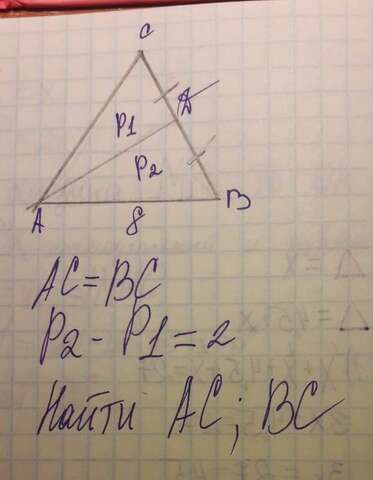 C
D
P1
P2
A
8
B
AC = BC
P2 - P1 = 2
Найти AC; BC